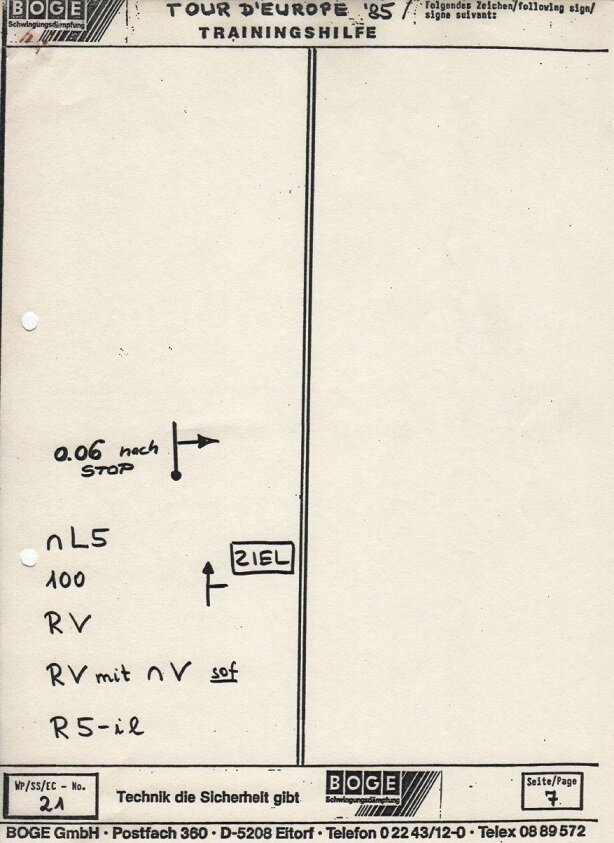 BOGE
Schwingungsdämpfung
TOUR D'EUROPE '85
TRAININGSHILFE
folgendes Zeichen/following sign/
signe suivant:
0.06 nach
STOP
nL5
100
ZIEL
RV
RV mit nV sof
R5-il
WP/SS/EC - No.
21
Technik die Sicherheit gibt
BOGE
Schwingungsdämpfung
Seite/Page
7
BOGE GmbH · Postfach 360 · D-5208 Eitorf · Telefon 0 22 43/12-0 · Telex 08 89 572